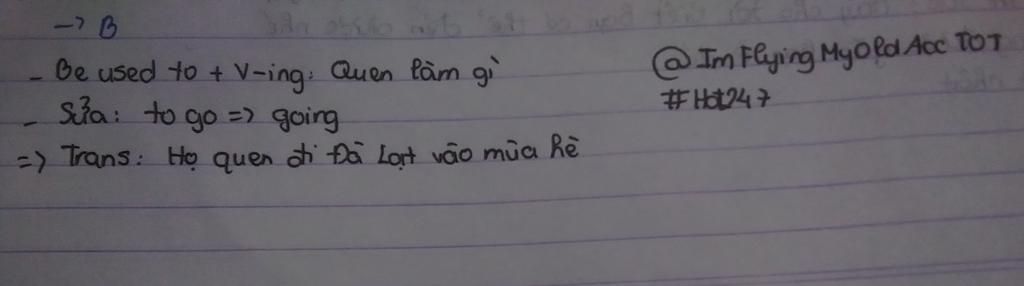 → B
- Be used to + V-ing: Quen làm gì
- Sửa: to go => going
=> Trans: Họ quen đi Đà Lạt vào mùa hè
@ImFlyingMyOldAccTOT
#Hot247